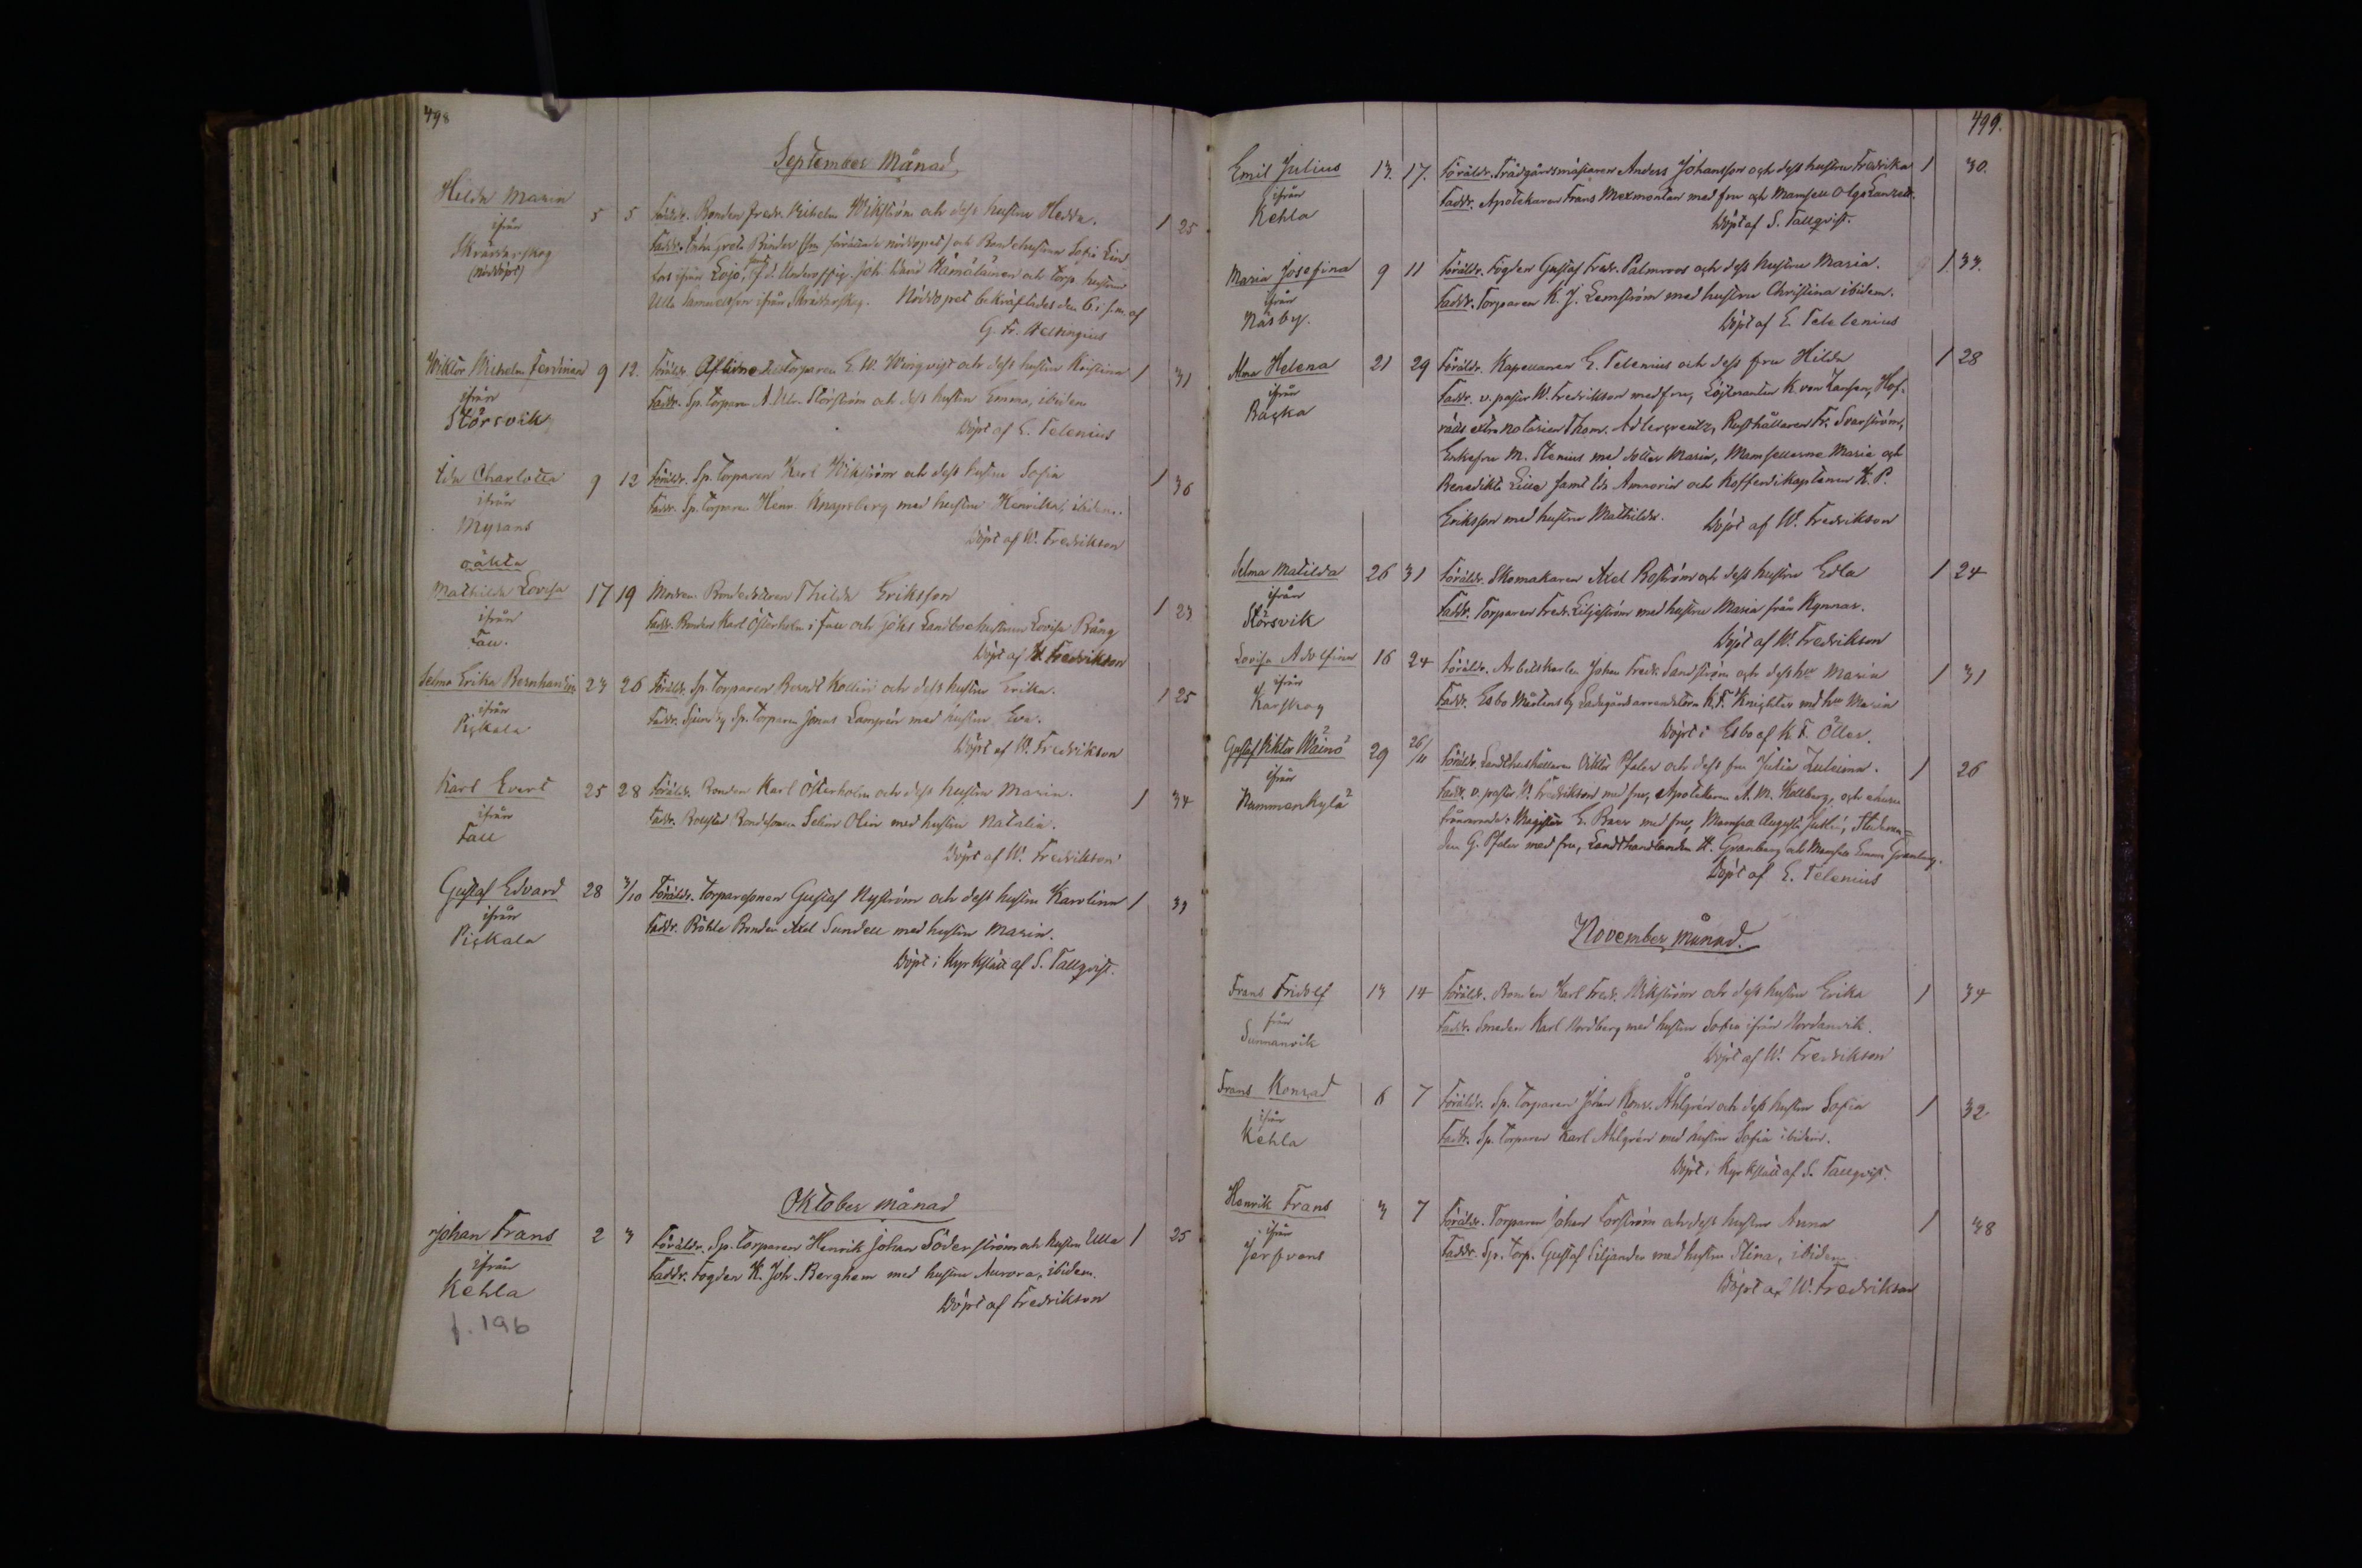 498
September Månad
Hilda Maria
ifrån
Skräddarskog
(nöddöpt)
5 5 Föräldr. Bonden Fredr. Vilhelm Wikström och dess hustru Hedda. 1 25
Faddr. Enk. Greta Rinder som förättade nöddopet) och Bondehustrun Sofia Lind
fors ifrån Lojo, f.d. Underoffic. Joh. David Hämäläinen och torp. hustrun
Ulla Samuelsson ifrån Skräddarskog. Nöddopet bekräftades den 6 i s.m. af
G. Fr. Helsingius
Wiktor Wilhelm Ferdinand 9 12. Föräldr. Aflidne torparen E. W. Wingqvist och dess hustru Kristina 1 31
ifrån
Störsvik
Faddr. Sp. torparen A. Störström och dess hustru Emma, ibidem
Döpt af E. Telenius
Ida Charlotta 9 12 Föräldr. Sp. Torparen Karl Wikström och dess hustru Sofia 1 36
ifrån
Myrans
Faddr. Sp. Torparen Henr. Knapsberg med hustru Henrika, ibidem.
Döpt af W. Fredrikson
oäkta
Mathilda Lovisa 17 19 Modren Bondedottren Thilda Eriksson 1 23
ifrån
Fall.
Faddr. Bonden Karl Österholm i Fall och Göks Landbohustrun Lovisa Rång
Döpt af W. Fredrikson
Selma Erika Bernhardina 23 26 Föräldr. Sp. Torparen Berndt Kollin och dess hustru Erika. 1 25
ifrån
Pickala
Faddr. Sjundby Sp. Torparen Jonas Lamprén med hustru Eva.
Döpt af W. Fredrikson
Karl Evert 25 28 Föräldr. Bonden Karl Österholm och dess hustru Maria. 1 34
ifrån
Fall
Faddr. Bolstad Bondesonen Selim Olin med hustru Natalia.
Döpt af W. Fredrikson
Gustaf Edvard 28 3/10 Föräldr. Torparesonen Gustaf Nyström och dess hustru Karolina 1 31
ifrån
Pickala
Faddr. Böhle Bonden Axel Sundell med hustru Maria.
Döpt i Kyrkslätt af S. Tallqvist.
Oktober månad
Johan Frans 2 3 Föräldr. Sp. Torparen Henrik Johan Söderström och hustru Ulla 1 25
ifrån
Kehla
Faddr. Fogden K. Joh. Berghem med hustru Aurora, ibidem.
Döpt af Fredrikson
f. 196
499.
Emil Julius 13. 17. Föräldr. Trädgårdsmästaren Anders Johansson och dess hustru Fredrika 1 30.
ifrån
Kehla
Faddr. Apotekaren Frans Mexmontan med fru och Mamsell Olga
Döpt af S. Tallqvist.
Maria Josefina 9 11 Föräldr. Fogden Gustaf Fredr. Palmroos och dess hustru Maria. 1. 33.
ifrån
Näsby.
Faddr. Torparen K. J. Lemström med hustru Christina ibidem.
Döpt af E. Telelenius
Alma Helena 21 29 Föräldr. Kapellanen E. Telenius och dess fru Hilda 1 28
ifrån
Backa
Faddr. v. pastor W. Fredrikson med fru, Löjtnanten K. von Zansen, Hof-
räds extra notarien Thom. Adlercreutz, Rusthållaren Fr. Svarström,
Enkefru M. Stenius med dotter Maria, Mamsellerne Maria och
Benedikta Lille samt Ida Ammorin och Kofferdikaptenen K. P.
Eriksson med hustru Mathilda. Döpt af W. Fredrikson
Selma Matilda 26 31 Föräldr. Skomakaren Axel Boström och dess hustru Edla 1 24
ifrån
Störsvik
Faddr. Torparen Fredr. Liljeström med hustru Maria från Kynnar.
Döpt af W. Fredrikson
Lovisa Adolfina 16 24 Föräldr. Arbetskarlen Johan Fredr. Sandström och dess hu Maria 1 31
ifrån
Karskog
Faddr. Esbo Mårtensby Ladugårdsarrendatorn K. F. Knichter md hu Maria
Döpt i Esbo af K. F. Öller.
Gustaf Viktor Wäinö 29 26/11 Föräldr. Landthushållaren Viktor Pfaler och dess fru Julia Zuleima. 1 26
ifrån
Nummenkylä
Faddr. v. pastor W. Fredrikson med fru, Apotekaren A. M. Kellberg, och såsom
frånvarande: Magister E. Baer med fru, Mamsell Augusta Juthé, Studeran=
den G. Pfaler med fru, Landthandlanden H. Granberg och Mamsell Emma Granberg.
Döpt af E. Telenius
November månad.
Frans Fridolf 13 14 Föräldr. Bonden Karl Fredr. Wikström och dess hustru Erika 1 34
från
Sunnanvik
Faddr. Smeden Karl Nordberg med hustru Sofia ifrån Nordanvik.
Döpt af W. Fredrikson
Frans Konrad 6 7 Föräldr. Sp. Torparen Johan Konr. Åhlgrén och dess hustru Sofia 1 32
ifrån
Kehla
Faddr. Sp. Torparen Karl Åhlgrén med hustru Sofia ibidem.
Döpt i Kyrkslätt af S. Tallqvist.
Henrik Frans 3 7 Föräldr. Torparen Johan Forström och dess hustru Anna 1 38
ifrån
Jerfvens
Faddr. Sp. Torp. Gustaf Siljander med hustru Stina, ibidem.
Döpt af W. Fredrikson